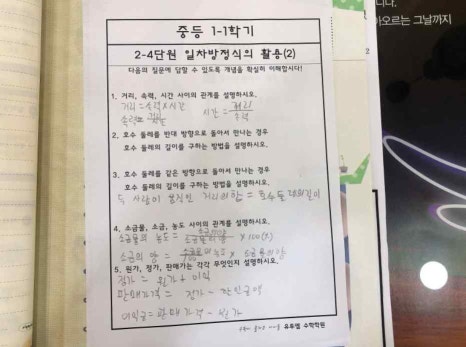 니다.
아오르는 그날까지
중등 1-1학기
2-4단원 일차방정식의 활용(2)
다음의 질문에 답할 수 있도록 개념을 확실히 이해합시다!
1. 거리, 속력, 시간 사이의 관계를 설명하시오.
거리 = 속력 × 시간 시간 = 거리/속력
속력 = 거리/시간
2. 호수 둘레를 반대 방향으로 돌아서 만나는 경우
호수 둘레의 길이를 구하는 방법을 설명하시오.
3. 호수 둘레를 같은 방향으로 돌아서 만나는 경우
호수 둘레의 길이를 구하는 방법을 설명하시오.
두 사람이 움직인 거리의 합 = 호수둘레의 길이
4. 소금물, 소금, 농도 사이의 관계를 설명하시오.
소금물의 농도 = 소금의양/소금물의양 × 100(%)
소금의 양 = 소금물의 농도/100 × 소금물의양
5. 원가, 정가, 판매가는 각각 무엇인지 설명하시오.
정가 = 원가 + 이익
판매가격 = 정가 - 할인금액
이익금 = 판매가격 - 원가
유투엠 수학학원